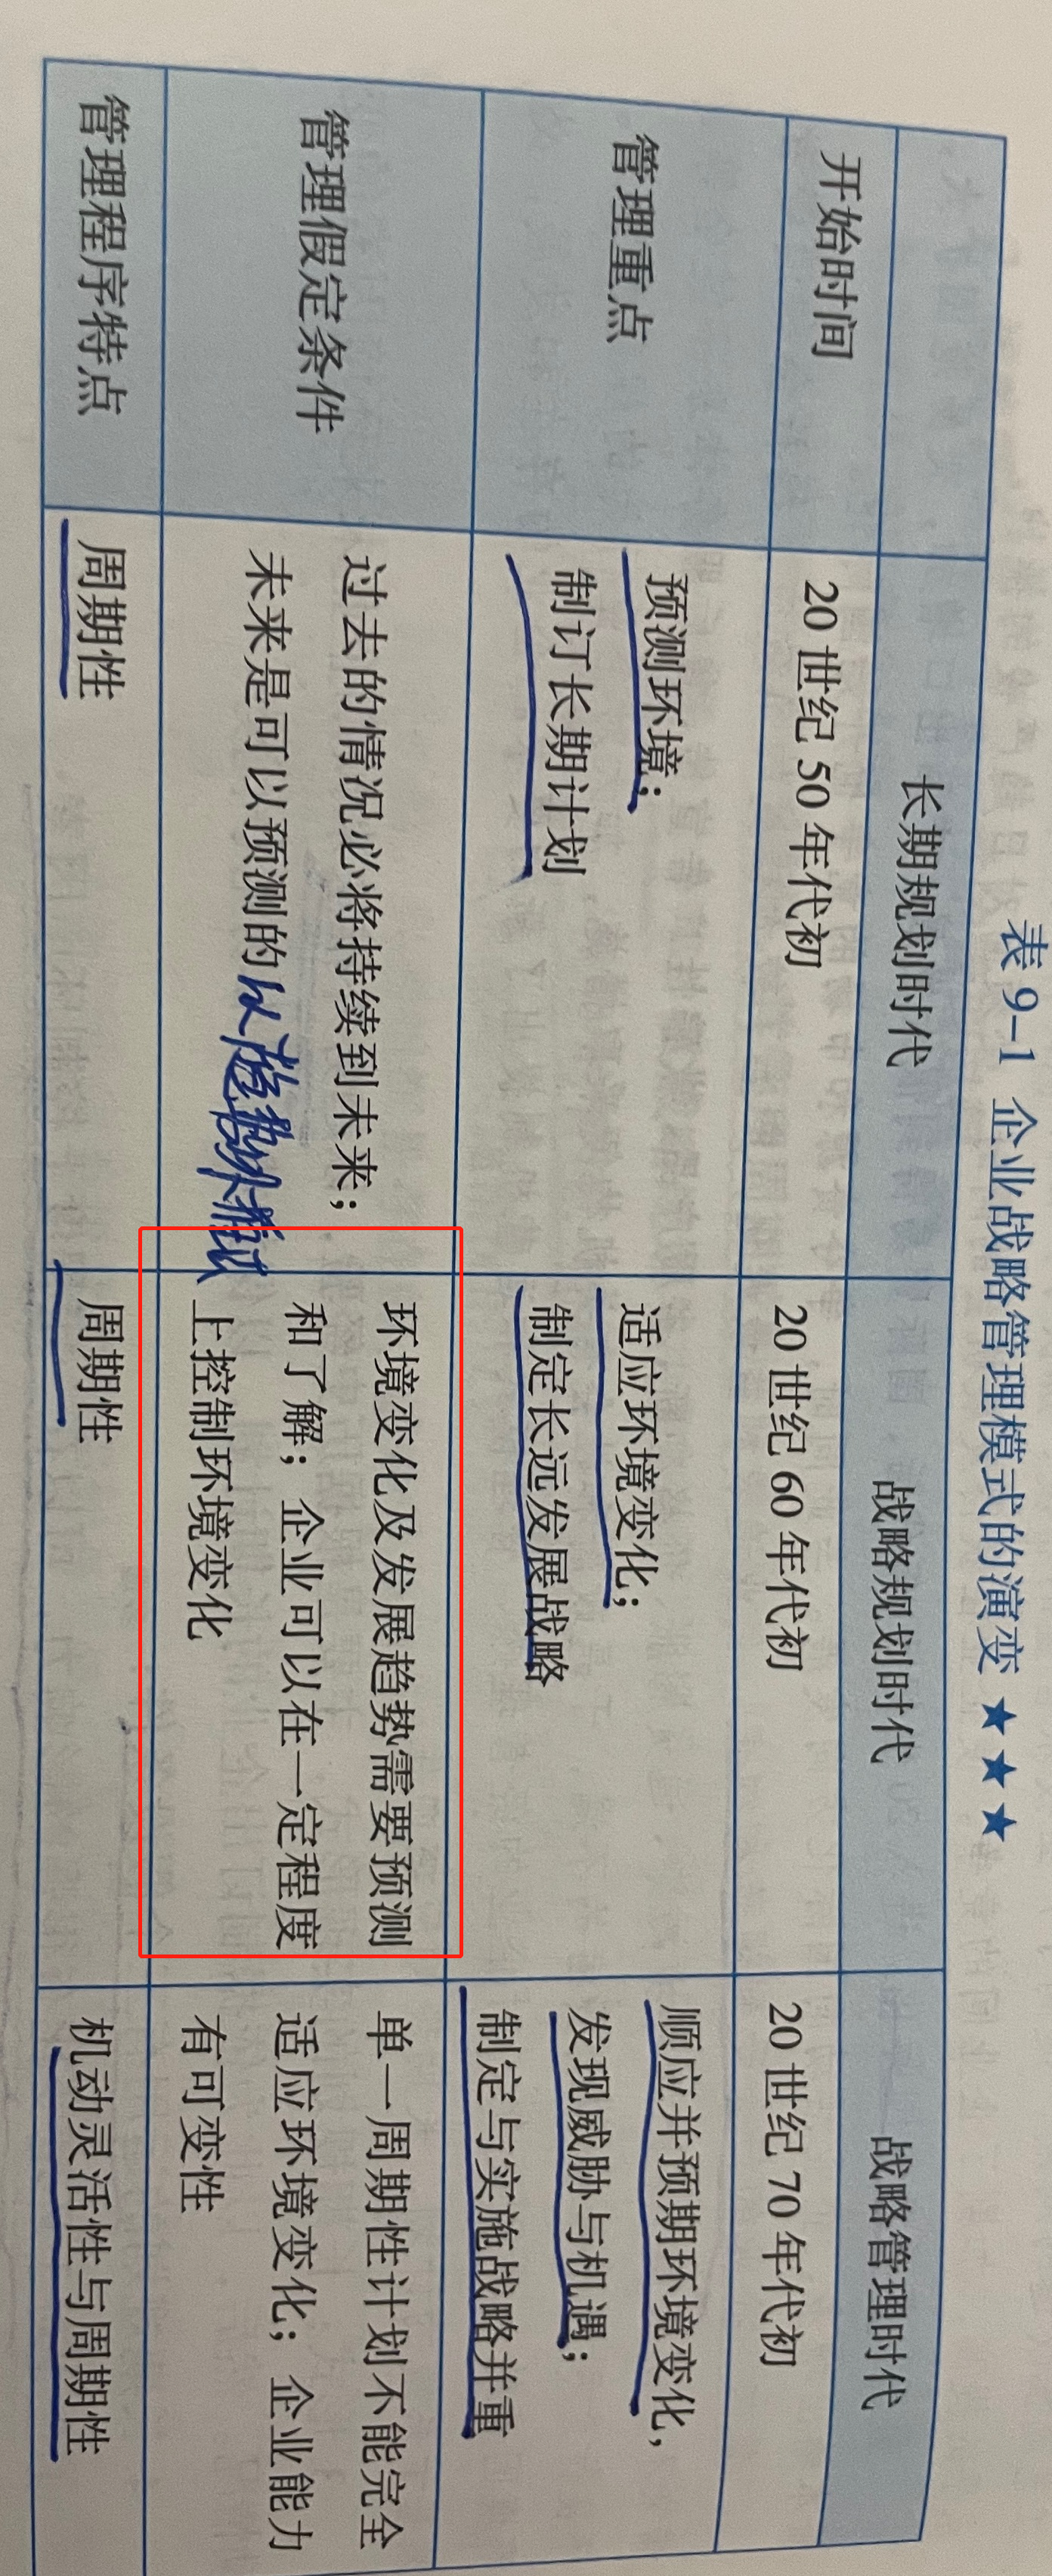 表 9-1 企业战略管理模式的演变 ★★★
长期规划时代 战略规划时代 战略管理时代
开始时间 20 世纪 50 年代初 20 世纪 60 年代初 20 世纪 70 年代初
管理重点
预测环境；
制订长期计划
适应环境变化；
制定长远发展战略
顺应并预期环境变化，
发现威胁与机遇；
制定与实施战略并重
管理假定条件
过去的情况必将持续到未来；
未来是可以预测的 以趋势外推法
环境变化及发展趋势需要预测
和了解；企业可以在一定程度
上控制环境变化
单一周期性计划不能完全
适应环境变化；企业能力
有可变性
管理程序特点 周期性 周期性 机动灵活性与周期性